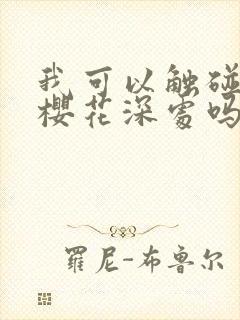 我可以触碰
樱花深处吗
罗尼-布鲁尔